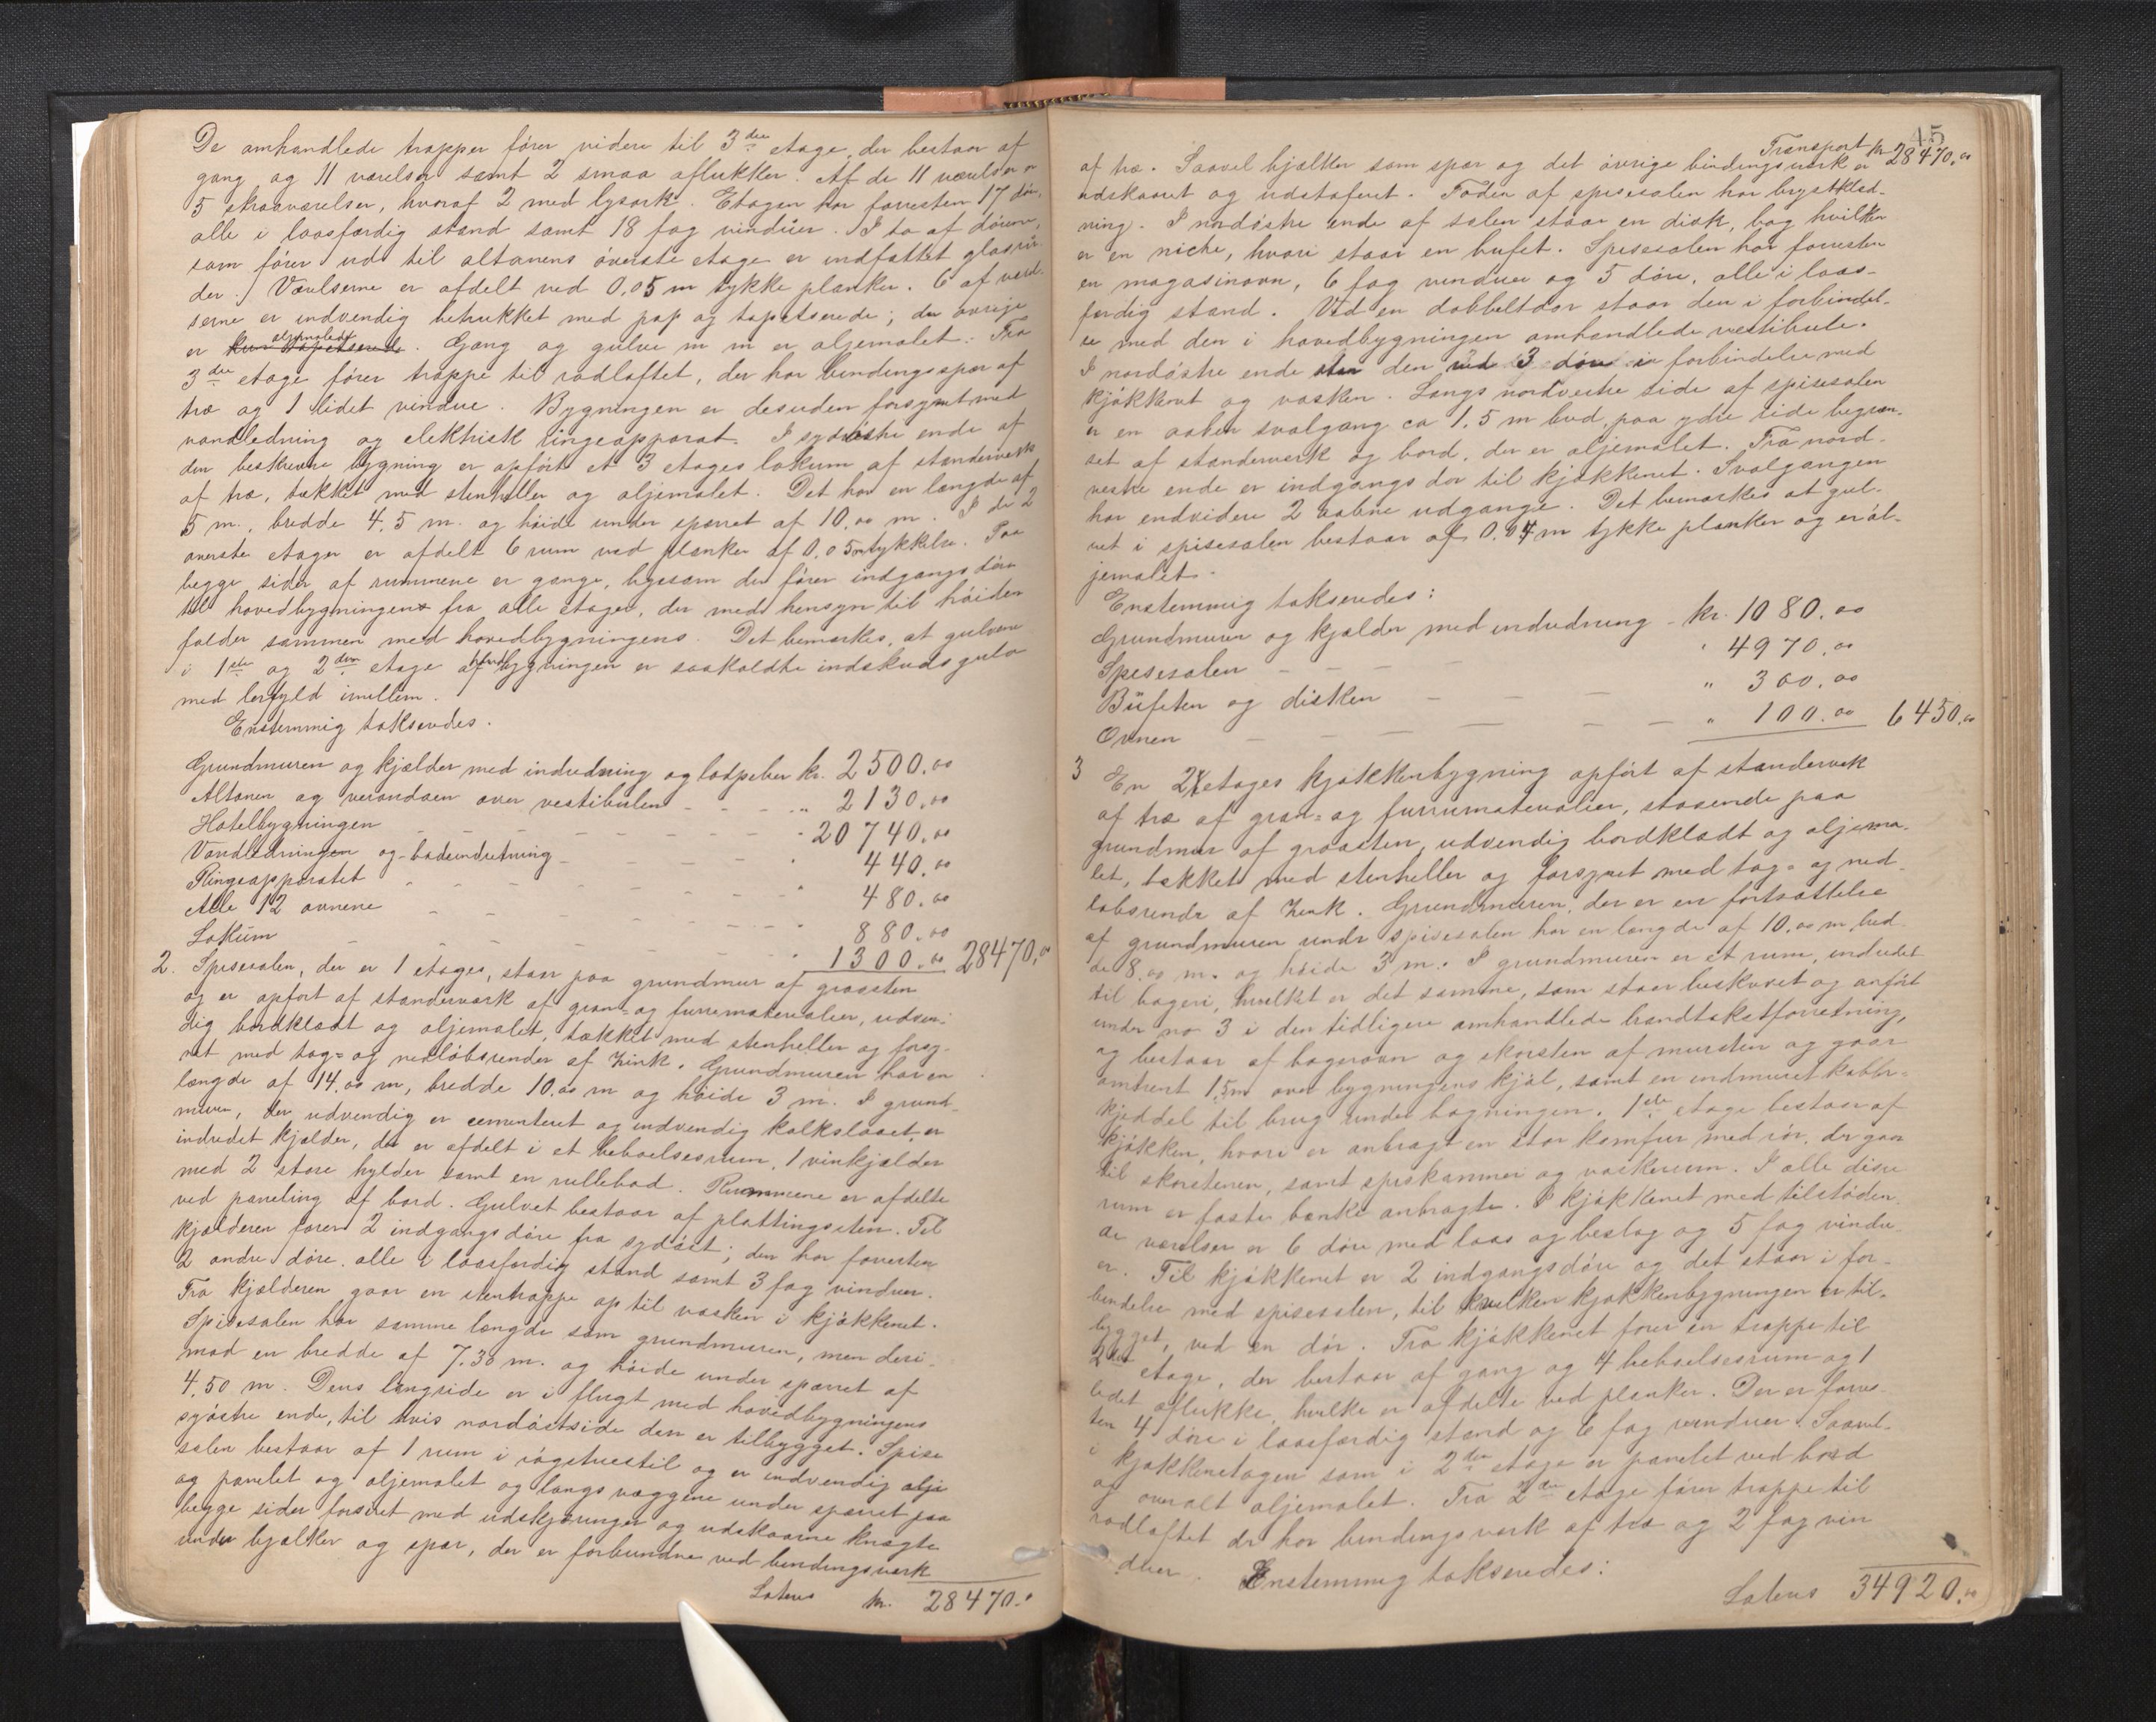 De omhandlede trapper fører videre til 3die etage, der bestaar af
gang og 11 værelser samt 2 smaa aflukker. Af de 11 værelser er
5 skraaværelser, hvoraf 2 med lysark. Etagen har forresten 17 døre,
alle i laasfærdig stand samt 18 fag vinduer. I to af dørene,
som fører ud til altanens øverste etage er indfattet glasru-
der. Værelserne er afdelt ved 0,05 m tykke planker. 6 af værel-
serne er indvendig betrukket med pap og tapetserede; de øvrige
er kun tapetserede oljemalede. Gang og gulve m m er oljemalet. Fra
3die etage fører trappe til rodloftet, der har bindingsspær af
træ og 1 lidet vindue. Bygningen er desuden forsynet med
vandledning og elektrisk ringeapparat. I sydøstre ende af
den beskrevne bygning er opført et 3 etages lokum af stenderverk
af træ, tækket med stenheller og oljemalet. Det har en længde af
5 m., bredde 4,5 m. og høide under sparret af 10,00 m. I de 2
øverste etager er afdelt 6 rum ved planker af 0,05 m tykkelse. Paa
begge sider af rummene er gange, ligesom der fører indgangsdøre
til hovedbygningen fra alle etager, der med hensyn til høiden
falder sammen med hovedbygningens. Det bemærkes, at gulvene
i 1ste og 2den etage af hovedbygningen er saakaldte indskudsgulv
med lerfyld imellem.
Enstemmig takseredes.
Grundmuren og kjælder med indredning og lodpiber kr. 2500.00
Altanen og verandaen over vestibulen - - - " 2130.00
Hotelbygningen - - - - - - - 20740.00
Vandledningen og badeindretning - - - - " 440.00
Ringeapparatet - - - - - - " 480.00
Alle 12 ovnene - - - - - - " 880.00
Lokum - - - - - - " 1300.00 28470.00
2. Spisesalen, der er 1 etages, staar paa grundmur af graasten
og er opført af stenderværk af gran- og furrumaterialier, udven-
dig bordklædt og oljemalet, tækket med stenheller og forsy-
net med tag- og nedløbsrender af Zink. Grundmuren har en
længde af 14,00 m, bredde 10,00 m og høide 3 m. I grund-
muren, der udvendig er cementeret og indvendig kalkslaaet, er
indredet kjælder, der er afdelt i et beboelsesrum, 1 vinkjælder
med 2 store hylder samt en rullebod. Rummene er afdelte
ved paneling af bord. Gulvet bestaar af plattingsten. Til
kjælderen fører 2 indgangsdøre fra sydøst; den har forresten
2 andre døre, alle i laasfærdig stand samt 3 fag vinduer.
Fra kjælderen gaar en stentrappe op til vasken i kjøkkenet.
Spisesalen har samme længde som grundmuren, men deri-
mod en bredde af 7.30 m. og høide under sparret af
4,50 m. Dens langside er i flugt med hovedbygningens
syøstre ende, til hvis nordøstside den er tilbygget. Spise
salen bestaar af 1 rum i røgstuestil og er indvendig olje
og panelet og oljemalet og langs væggene under sparret paa
begge sider forsiret med udskjæringer og udskaarne knægte
under bjælker og spær, der er forbundne ved bindingsverk
Latus kr. 28470.00
45
Transport kr 28470.00
af træ. Saavel bjælker som spær og det øvrige bindingsverk er
udskaaret og udstaferet. Foden af spisesalen har brystklæd-
ning. I nordøstre ende af salen staar en disk, bag hvilken
er en niche, hvori staar en bufet. Spisesalen har forresten
en magasinovn, 6 fag vinduer og 5 døre, alle i laas-
færdig stand. Ved en dobbeltdør staar den i forbindel-
se med den i hovedbygningen omhandlede vestibule.
I nordøstre ende den ved 3 døre i forbindelse med
kjøkkenet og vasken. Langs nordvestre side af spisesalen
er en aaben svalgang ca 1,5 m bred, paa ydre side begræn-
set af stenderverk og bord, der er oljemalet. Fra nord-
vestre ende er indgangsdør til kjøkkenet. Svalgangen
har endvidere 2 aabne udgange. Det bemærkes at gul-
vet i spisesalen bestaar af 0.04 m tykke planker og er ol-
jemalet.
Enstemmig takseredes:
Grundmuren og kjælder med indredning - kr. 1080.00
Spisesalen - - - - " 4970.00
Büfeten og disken - - - " 300.00
Ovnen - - - - - " 100.00 6450.00
3 En 2 etages kjøkkenbygning opført af stenderverk
af træ af gran- og furrumaterialier, staaende paa
grundmur af graasten, udvendig bordklædt og oljema-
let, tækket med stenheller og forsynet med tag- og ned-
løbsrender af Zink. Grundmuren, der er en fortsættelse
af grundmuren under spisesalen har en længde af 10.00 m, bred-
de 8,00 m. og høide 3 m. I grundmuren er et rum, indredet
til bageri, hvilket er det samme, som staar beskrevet og anført
under no 3 i den tidligere omhandlede brandtakstforretning,
og bestaar af bagerovn og skorsten af mursten og gaar
omtrent 1,5 m over bygningens kjøl, samt en indmuret kobber-
kjeddel til brug under bagningen. 1ste etage bestaar af
kjøkken, hvori er anbragt en stor komfur med rør, der gaar
til skorstenen, samt spiskammer og vaskerum. I alle disse
rum er faste bænke anbragte. I kjøkkenet med tilstøden-
de værelser er 6 døre med laas og beslag og 5 fag vindu-
er. Til kjøkkenet er 2 indgangsdøre og det staar i for-
bindelse med spisesalen, til hvilken kjøkkenbygningen er til-
bygget, ved en dør. Fra kjøkkenet fører en trappe til
2den etage, der bestaar af gang og 4 beboelsesrum og 1
lidet aflukke, hvilke er afdelte ved planker. Der er forres-
ten 4 døre i laasfærdig stand og 6 fag vinduer. Saavel
i kjøkkenetagen som i 2den etage er panelet ved bord
og overalt oljemalet. Fra 2den etage fører trappe til
rodloftet der har bindingsverk af træ og 2 fag vin
duer. Enstemmig takseredes:
Latus 34920.00